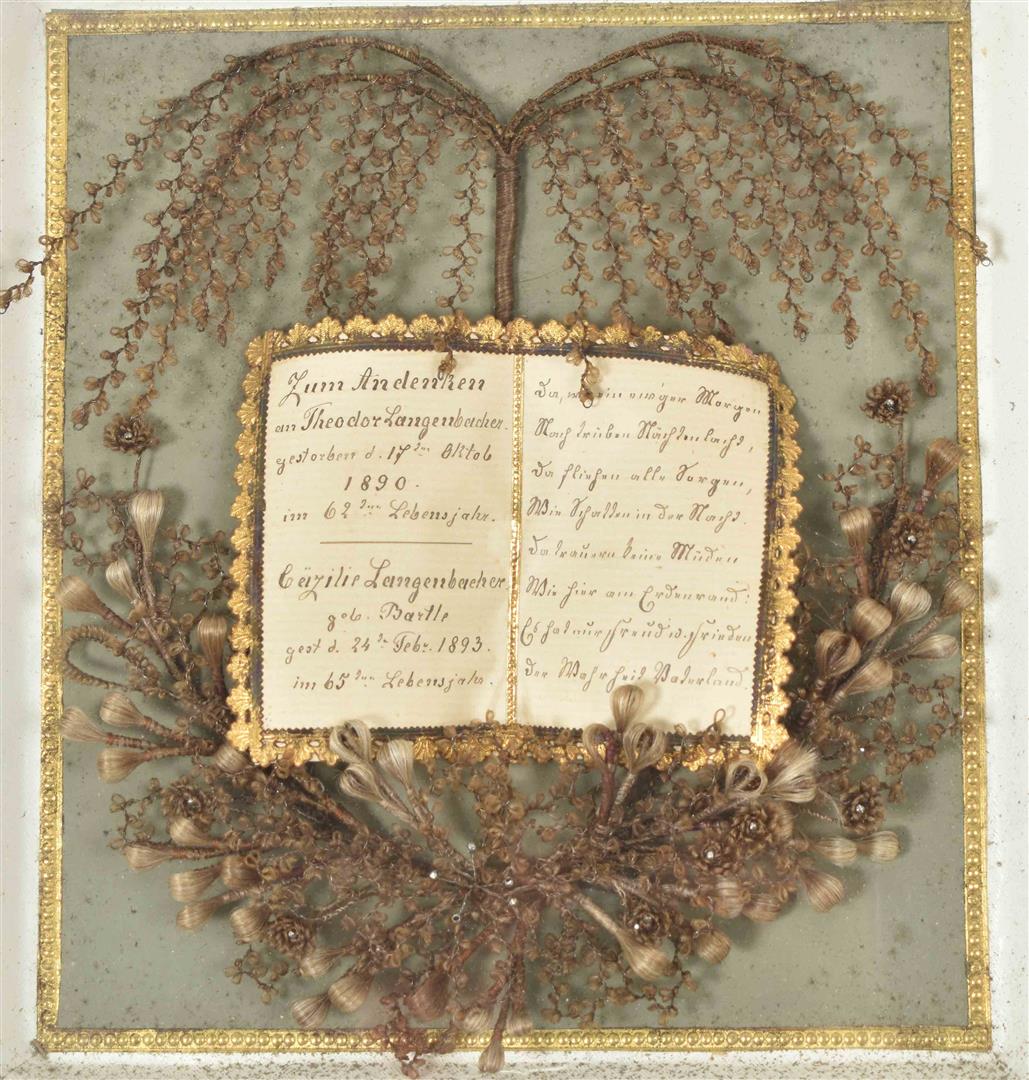 Zum Andenken
an Theodor Langenbacher.
gestorben d. 17ten Oktob
1890.
im 62ten Lebensjahr.
Cäzilie Langenbacher
geb. Bartle
gest d. 24ten Febr. 1893.
im 65ten Lebensjahr.
Da, wo ein ew'ger Morgen
Nach trüben Nächten lacht,
Da fliehen alle Sorgen,
Wie Schatten in der Nacht.
Da trauern keine Müden
Wie hier am Erdenrand:
Es hat nur Freud u. Frieden
Der Wahrheit Vaterland.